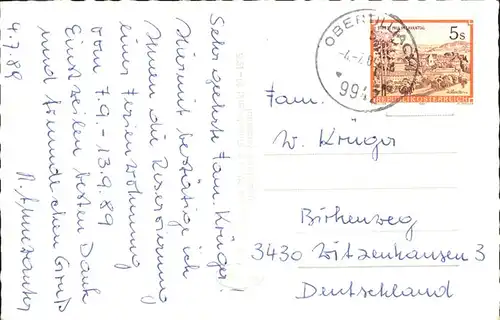 4.7.89
Sehr geehrte Fam. Krüger!
Hiermit bestätige ich
Ihnen die Reservierung
einer Ferienwohnung
vom 7.9. - 13.9.89
Einstweilen besten Dank
und freundlichen Gruß
OBERTILLIACH
9942
5s
REPUBLIK ÖSTERREICH
Fam.
W. Krüger
Birkenweg
3430 Witzenhausen 3
Deutschland